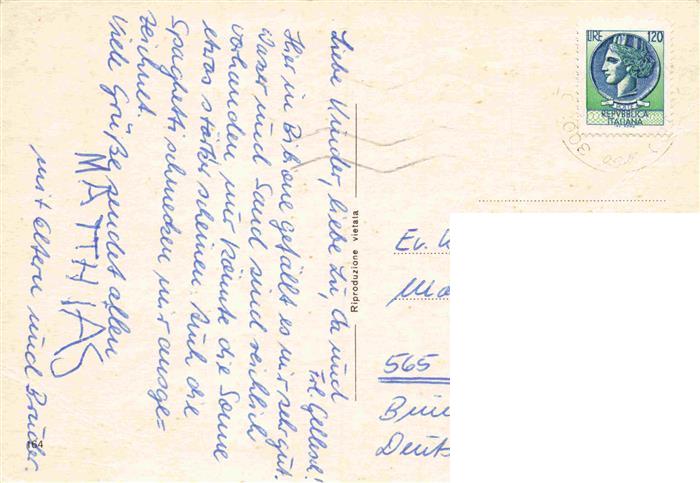 Liebe Kinder, liebe Lu, du und
Frl. Gellesch!
Hier in Bibione gefällt es mir sehr gut.
Wasser und Sand sind reichlich
vorhanden nur könnte die Sonne
etwas stärker scheinen. Auch die
Spaghetti schmecken mir ausge-
zeichnet.
Viele Grüße sendet allen
MATTHIAS
mit Eltern und Bruder.
164
Riproduzione vietata
LIRE 120
REPVBBLICA
ITALIANA
Ev. K
565
Deut